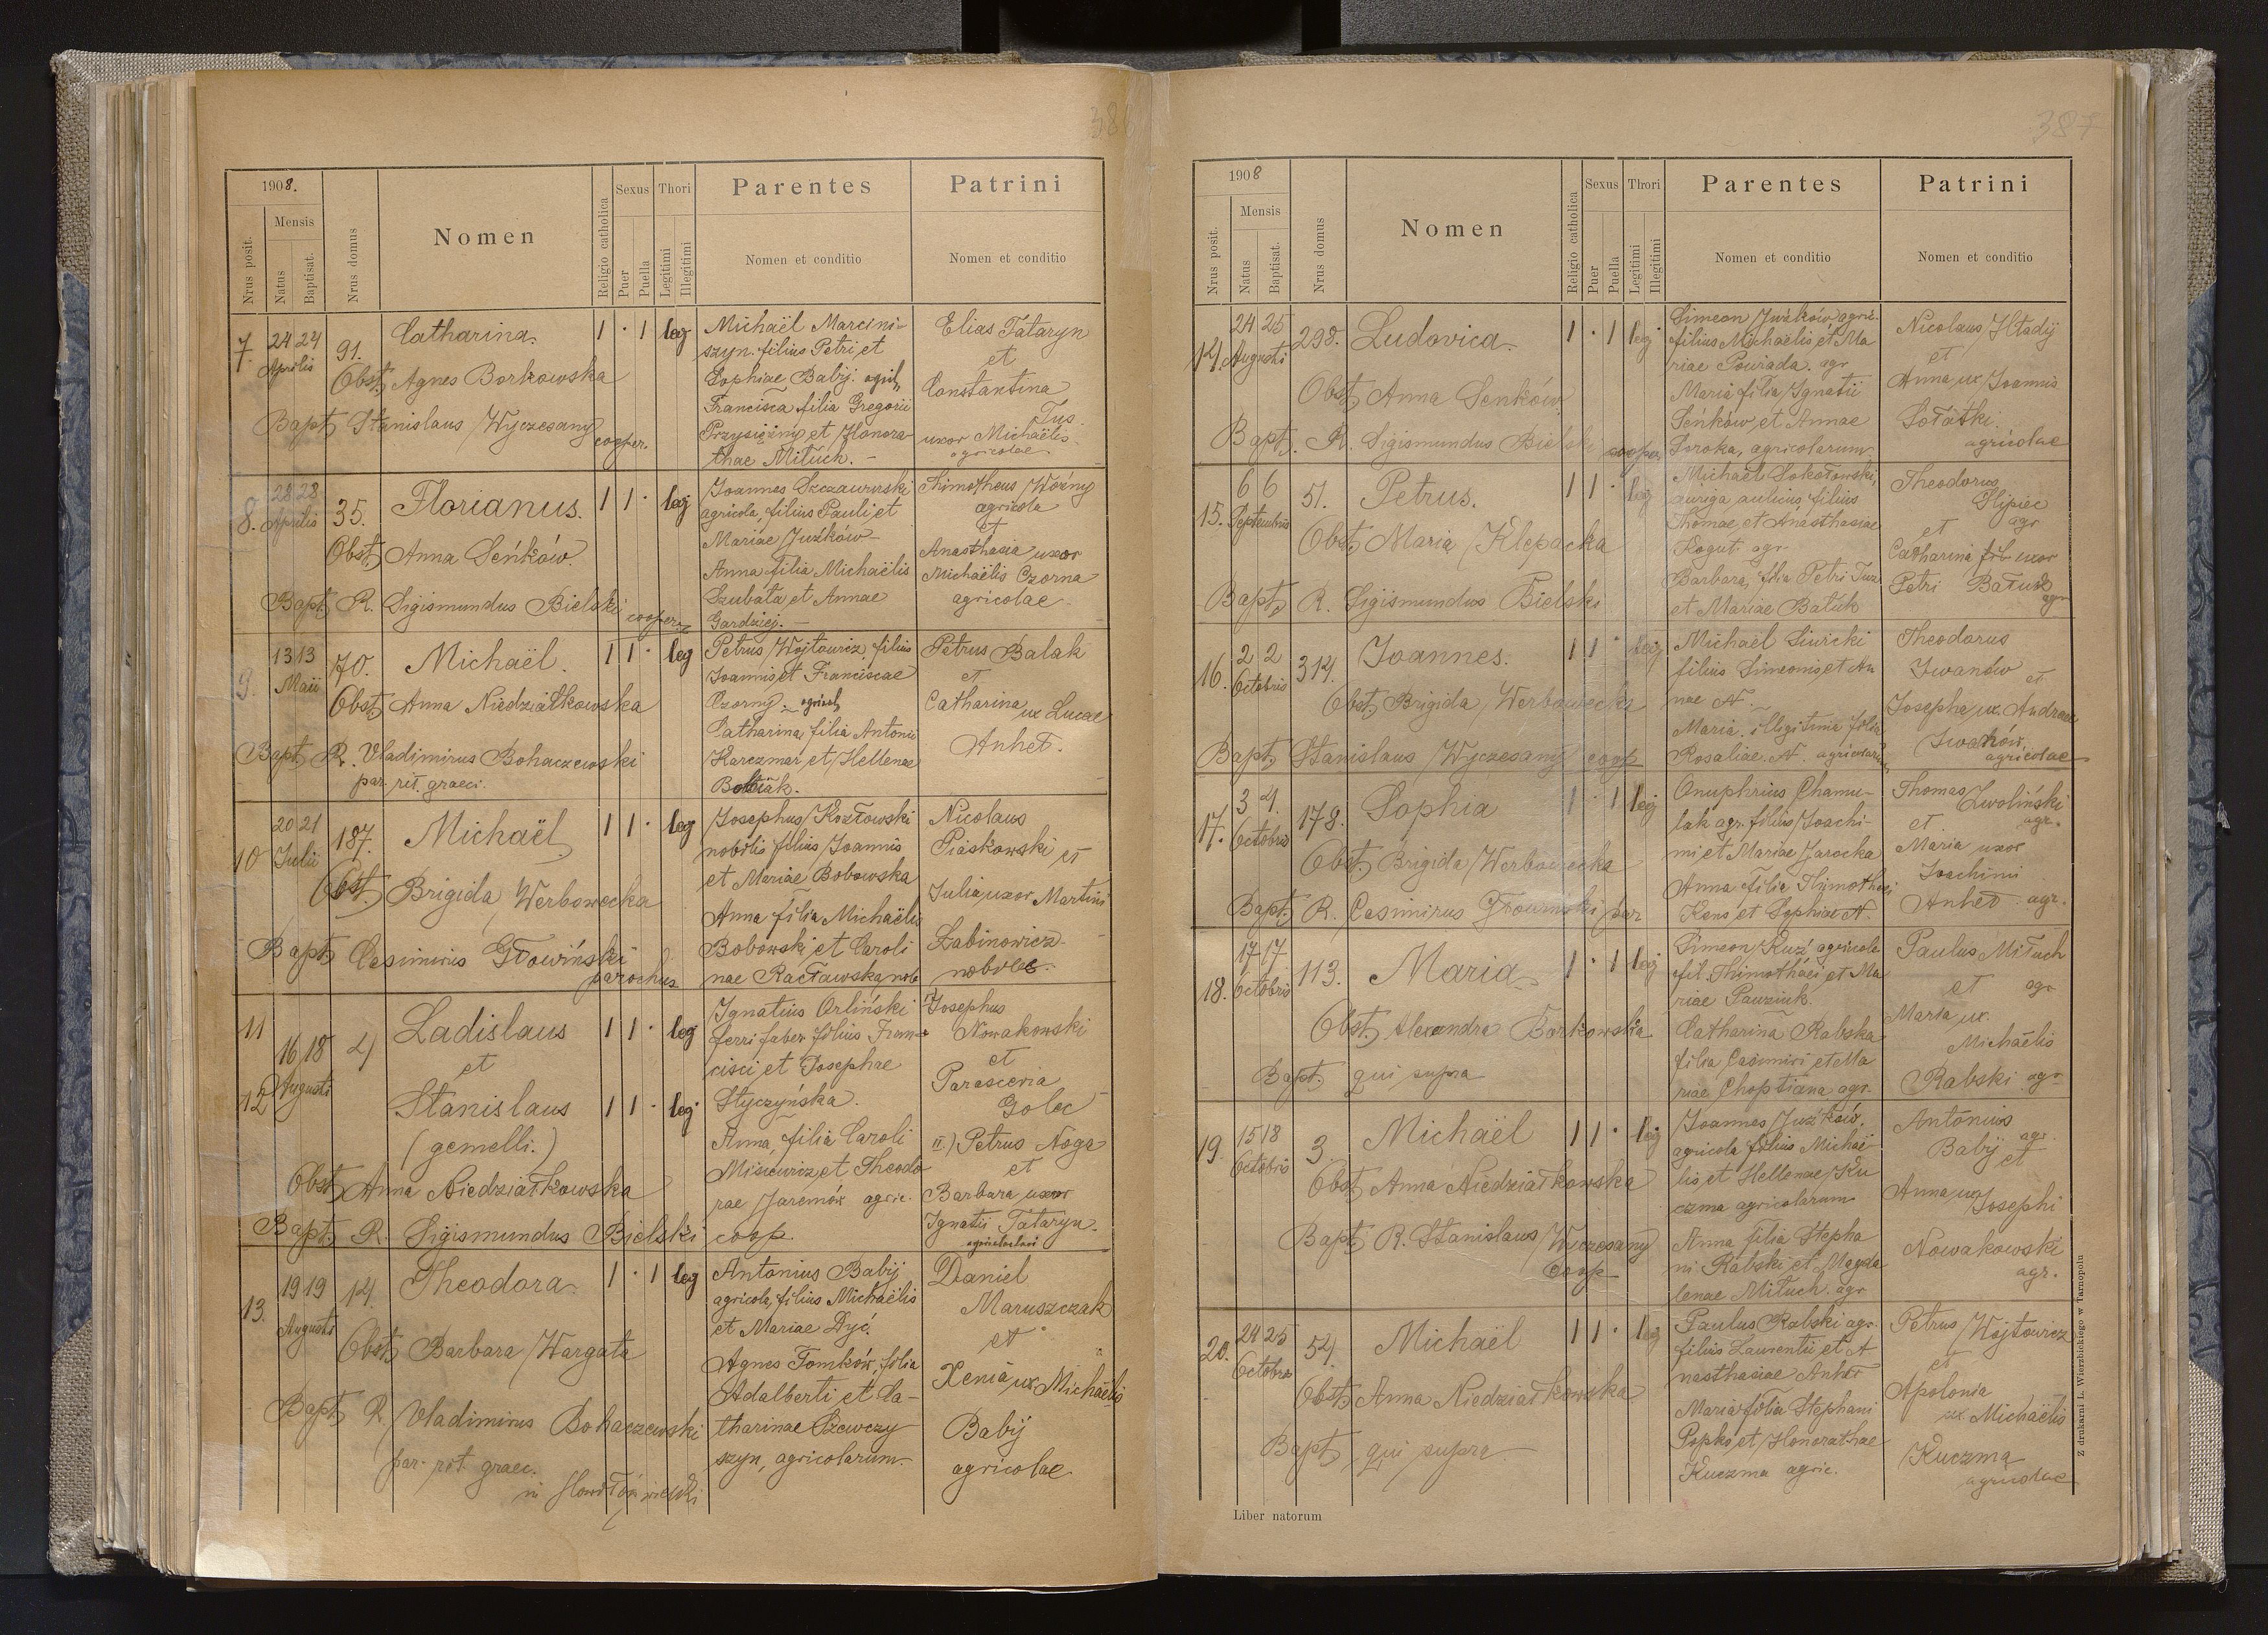 386
1908.
Nrus posit.
Mensis
Natus
Baptisat.
Nrus domus
Nomen
Religio catholica
Sexus
Puer
Puella
Thori
Legitimi
Illegitimi
Parentes
Nomen et conditio
Patrini
Nomen et conditio
7. 24 24 Aprilis 91. Catharina. 1 · 1 leg
Obst. Agnes Borkowska
Bapt. Stanislaus Wyczesany cooper.
Michaël Marcini-
szyn. filius Petri et
Sophiae Babij. agric.
Francisca filia Gregorii
Przysiężny et Honora-
thae Mituch. -
Elias Tataryn
et
Constantina
Tus.
uxor Michaëlis
agricolae
8. 28 28 Aprilis 35. Florianus. 1 1 · leg
Obst. Anna Seńków.
Bapt. R. Sigismundus Bielski cooper.
Joannes Szczawurski
agricola, filius Pauli et
Mariae Juźków -
Anna filia Michaëlis
Szubata et Annae
Gardziej. -
Thimotheus Woźny
agricola
et
Anasthasia uxor
Michaëlis Czorna
agricolae
9. 13 13 Maii 70. Michaël. 1 1 · leg
Obst. Anna Niedziałkowska
Bapt. R. Vladimirus Bohaczewski
par. rit. graeci.
Petrus Wojtowicz, filius
Joannis et Franciscae
Czorny. agricol.
Catharina, filia Antonii
Karczmar et Hellenae
Petrus Balak
et
Catharina ux Lucae
Anhet.
10 20 21 Julii 187. Michaël 1 1 · leg
Obst. Brigida Werbowecka
Bapt. Casimirus Głowiński
parochus
Josephus Kozłowski
nobilis filius Joannis
et Mariae Bobowska
Anna filia Michaëlis
Bobowski et Caroli
nae Racławska, nob
Nicolaus
Piaskowski et
Julia uxor Martini
Łabinowicz
nobiles.
11 16 18 Augusti 4 Ladislaus 1 1 · leg
et
12 Stanislaus 1 1 · leg
(gemelli.)
Obst. Anna Niedziałkowska
Bapt. R. Sigismundus Bielski coop.
Ignatius Orliński
ferri faber filius Fran-
cisci et Josephae
Styczyńska.
Anna, filia Caroli
Misiewicz et Theodo
rae Jaremów agric.
Josephus
Nowakowski
et
Parasceria
Golec
II) Petrus Noga
et
Barbara uxor
Ignatii Tataryn.
13. 19 19 Augusti 14. Theodora. 1 · 1 leg
Obst. Barbara Wargata
Bapt. R. Vladimirus Bohaczewski
par. rit. graec.
Antonius Babij
agricola, filius Michaëlis
et Mariae Dyć.
Agnes Tomków, filia
Adalberti et Ca-
tharinae Szewczy
szyn, agricolarum.
Daniel
Maruszczak
et
Xenia ux Michaëlis
Babij
agricolae
387
1908
Nrus posit.
Mensis
Natus
Baptisat.
Nrus domus
Nomen
Religio catholica
Sexus
Puer
Puella
Thori
Legitimi
Illegitimi
Parentes
Nomen et conditio
Patrini
Nomen et conditio
14. 24 25 Augusti 298. Ludovica. 1 · 1 leg
Obst. Anna Senków
Bapt. R. Sigismundus Bielski cooper
Simeon Juźków agric.
filius Michaelis, et Ma
riae Powrada. agr
Maria filia Ignatii
Seńków, et Annae
Siroka, agricolarum
Nicolaus Hładij
et
Anna ux Joannis
Sołatki
agricolae
15. 6 6 Septembris 51. Petrus. 1 1 · leg
Obst. Maria Klepacka
Bapt. R. Sigismundus Bielski
Michaël Sokołowski,
auriga aulicus, filius
Thomae, et Anasthasiae
Kogut agr
Barbara, filia Petri Tuz
et Mariae Batuk
Theodorus
Slipiec
agr
et
Catharina uxor
Petri Batuk
agr
16. 2 2 Octobris 314. Joannes. 1 1 · leg
Obst. Brigida Werbowecka
Bapt. Stanislaus Wyczesany coop
Michaël Siwicki
filius Simeonis et An
nae N.
Maria. illegitima filia
Rosaliae N. agricolarum
Theodorus
Iwanów et
Josepha ux. Andreae
Iwanów,
agricolae
17. 3 4. Octobris 178. Sophia 1 · 1 leg
Obst. Brigida Werbowecka
Bapt. R. Casimirus Głowiński par
Onuphrius Chamu-
lak agr. filius Joachi-
mi et Mariae Jarocka
Anna filia Thymothaei
Kens et Sophiae N.
Thomas Zwoliński
et agr.
Maria uxor
Joachimi
Anhet agr.
18. 17 17 Octobris 113. Maria 1 · 1 leg
Obst. Alexandra Borkowska
Bapt. qui supra
Simeon Kuź agricola
fil. Thimothaei et Ma
riae Pauziuk.
Catharina Rabska
filia Casimiri et Ma
riae Choptiana agr.
Paulus Mituch
et agr
Maria ux.
Michaëlis
Rabski agr
19. 15 18 Octobris 3. Michaël 1 1 · leg
Obst. Anna Niedziałkowska
Bapt. R. Stanislaus Wyczesany
Coop
Joannes Juźków,
agricola filius Michaë-
lis et Hellenae Ku
czma agricolarum
Anna filia Stepha
ni Rabski et Magda
lenae Mituch. agr
Antonius
agr.
Babij et
Anna ux Josephi
Nowakowski
agr.
20. 24 25 Octobris 54. Michaël 1 1 · leg
Obst. Anna Niedziałkowska
Bapt. qui supra
Paulus Rabski agr.
filius Laurentii et A
nasthasiae Anhet
Maria filia Stephani
Popko et Honorathae
Kuczma agric.
Petrus Wojtowicz
et
Apolonia
ux Michaëlis
Kuczma
agricolae
Liber natorum
Z drukarni L. Wierzbickiego w Tarnopolu